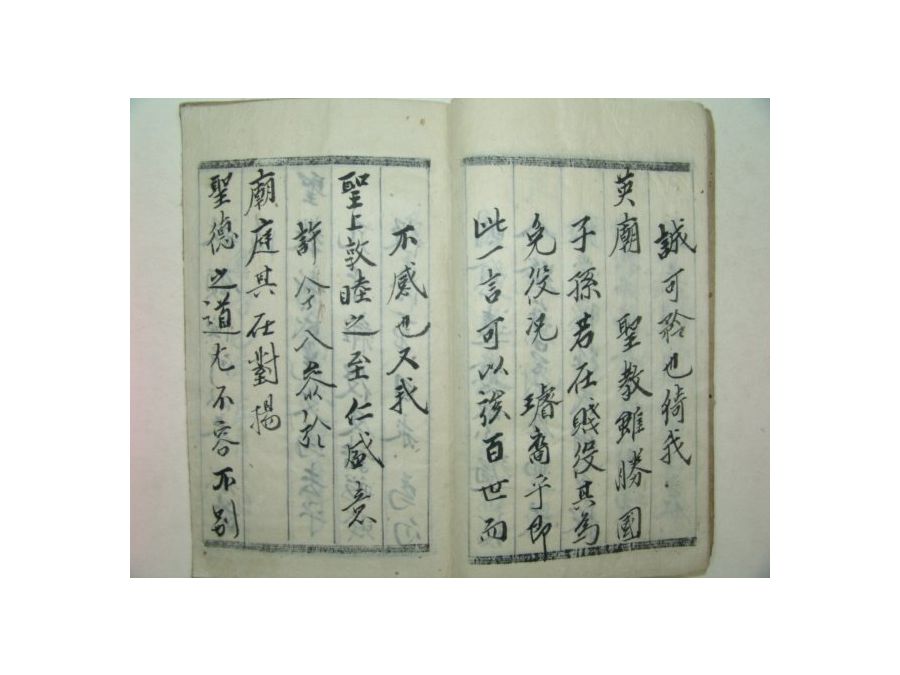 誠可矜也猗我
英廟 聖教雖勝國
子孫若在賤役其為
免役况 璿裔乎即
此一言可以 百世而
不感也又我
聖上敦睦之至仁盛意
許令入參於
廟庭其在對揚
聖德之道尤不容不別